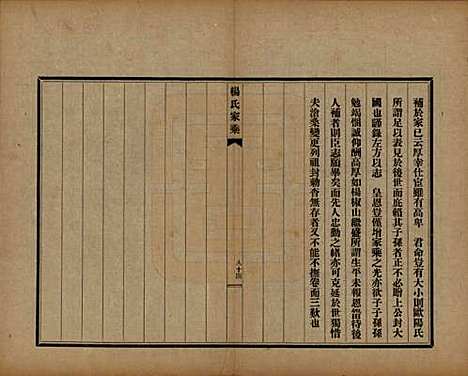 補於家已云厚幸仕宦雖有高卑　君命豈有大小則歐陽氏
所謂足以表見於後世而庇賴其子孫者正不必贈上公封大
國也謹錄左方以志　皇恩豈僅增家乘之光亦欲子子孫孫
勉竭悃誠仰酬高厚如楊椒山繼盛所謂生平未報恩當待後
人補者則臣志願畢矣而先人忠勳之緒亦可克延於世獨惜
夫滄桑變更列祖封勅杳無存者又不能不撫卷而三歎也
楊氏家乘